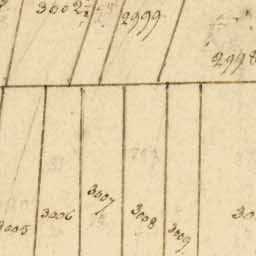 3002½
2999
2998
3007
3005
3006
3008
3009
30